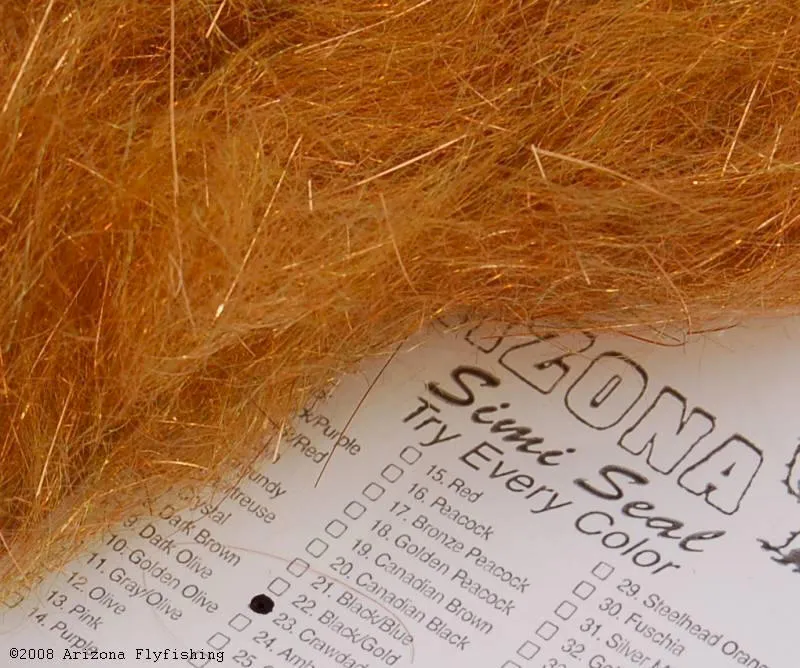 IZONA
Simi Seal
Try Every Color
k/Purple
/Red
Crystal
9. Dark Olive
Dark Brown
10. Golden Olive
11. Gray/Olive
12. Olive
13. Pink
14. Purple
15. Red
16. Peacock
17. Bronze Peacock
18. Golden Peacock
19. Canadian Brown
20. Canadian Black
21. Black/Blue
22. Black/Gold
23. Crawdad
24. Amb
25.
29. Steelhead Oran
30. Fuschia
31. Silver M
32.
©2008 Arizona Flyfishing